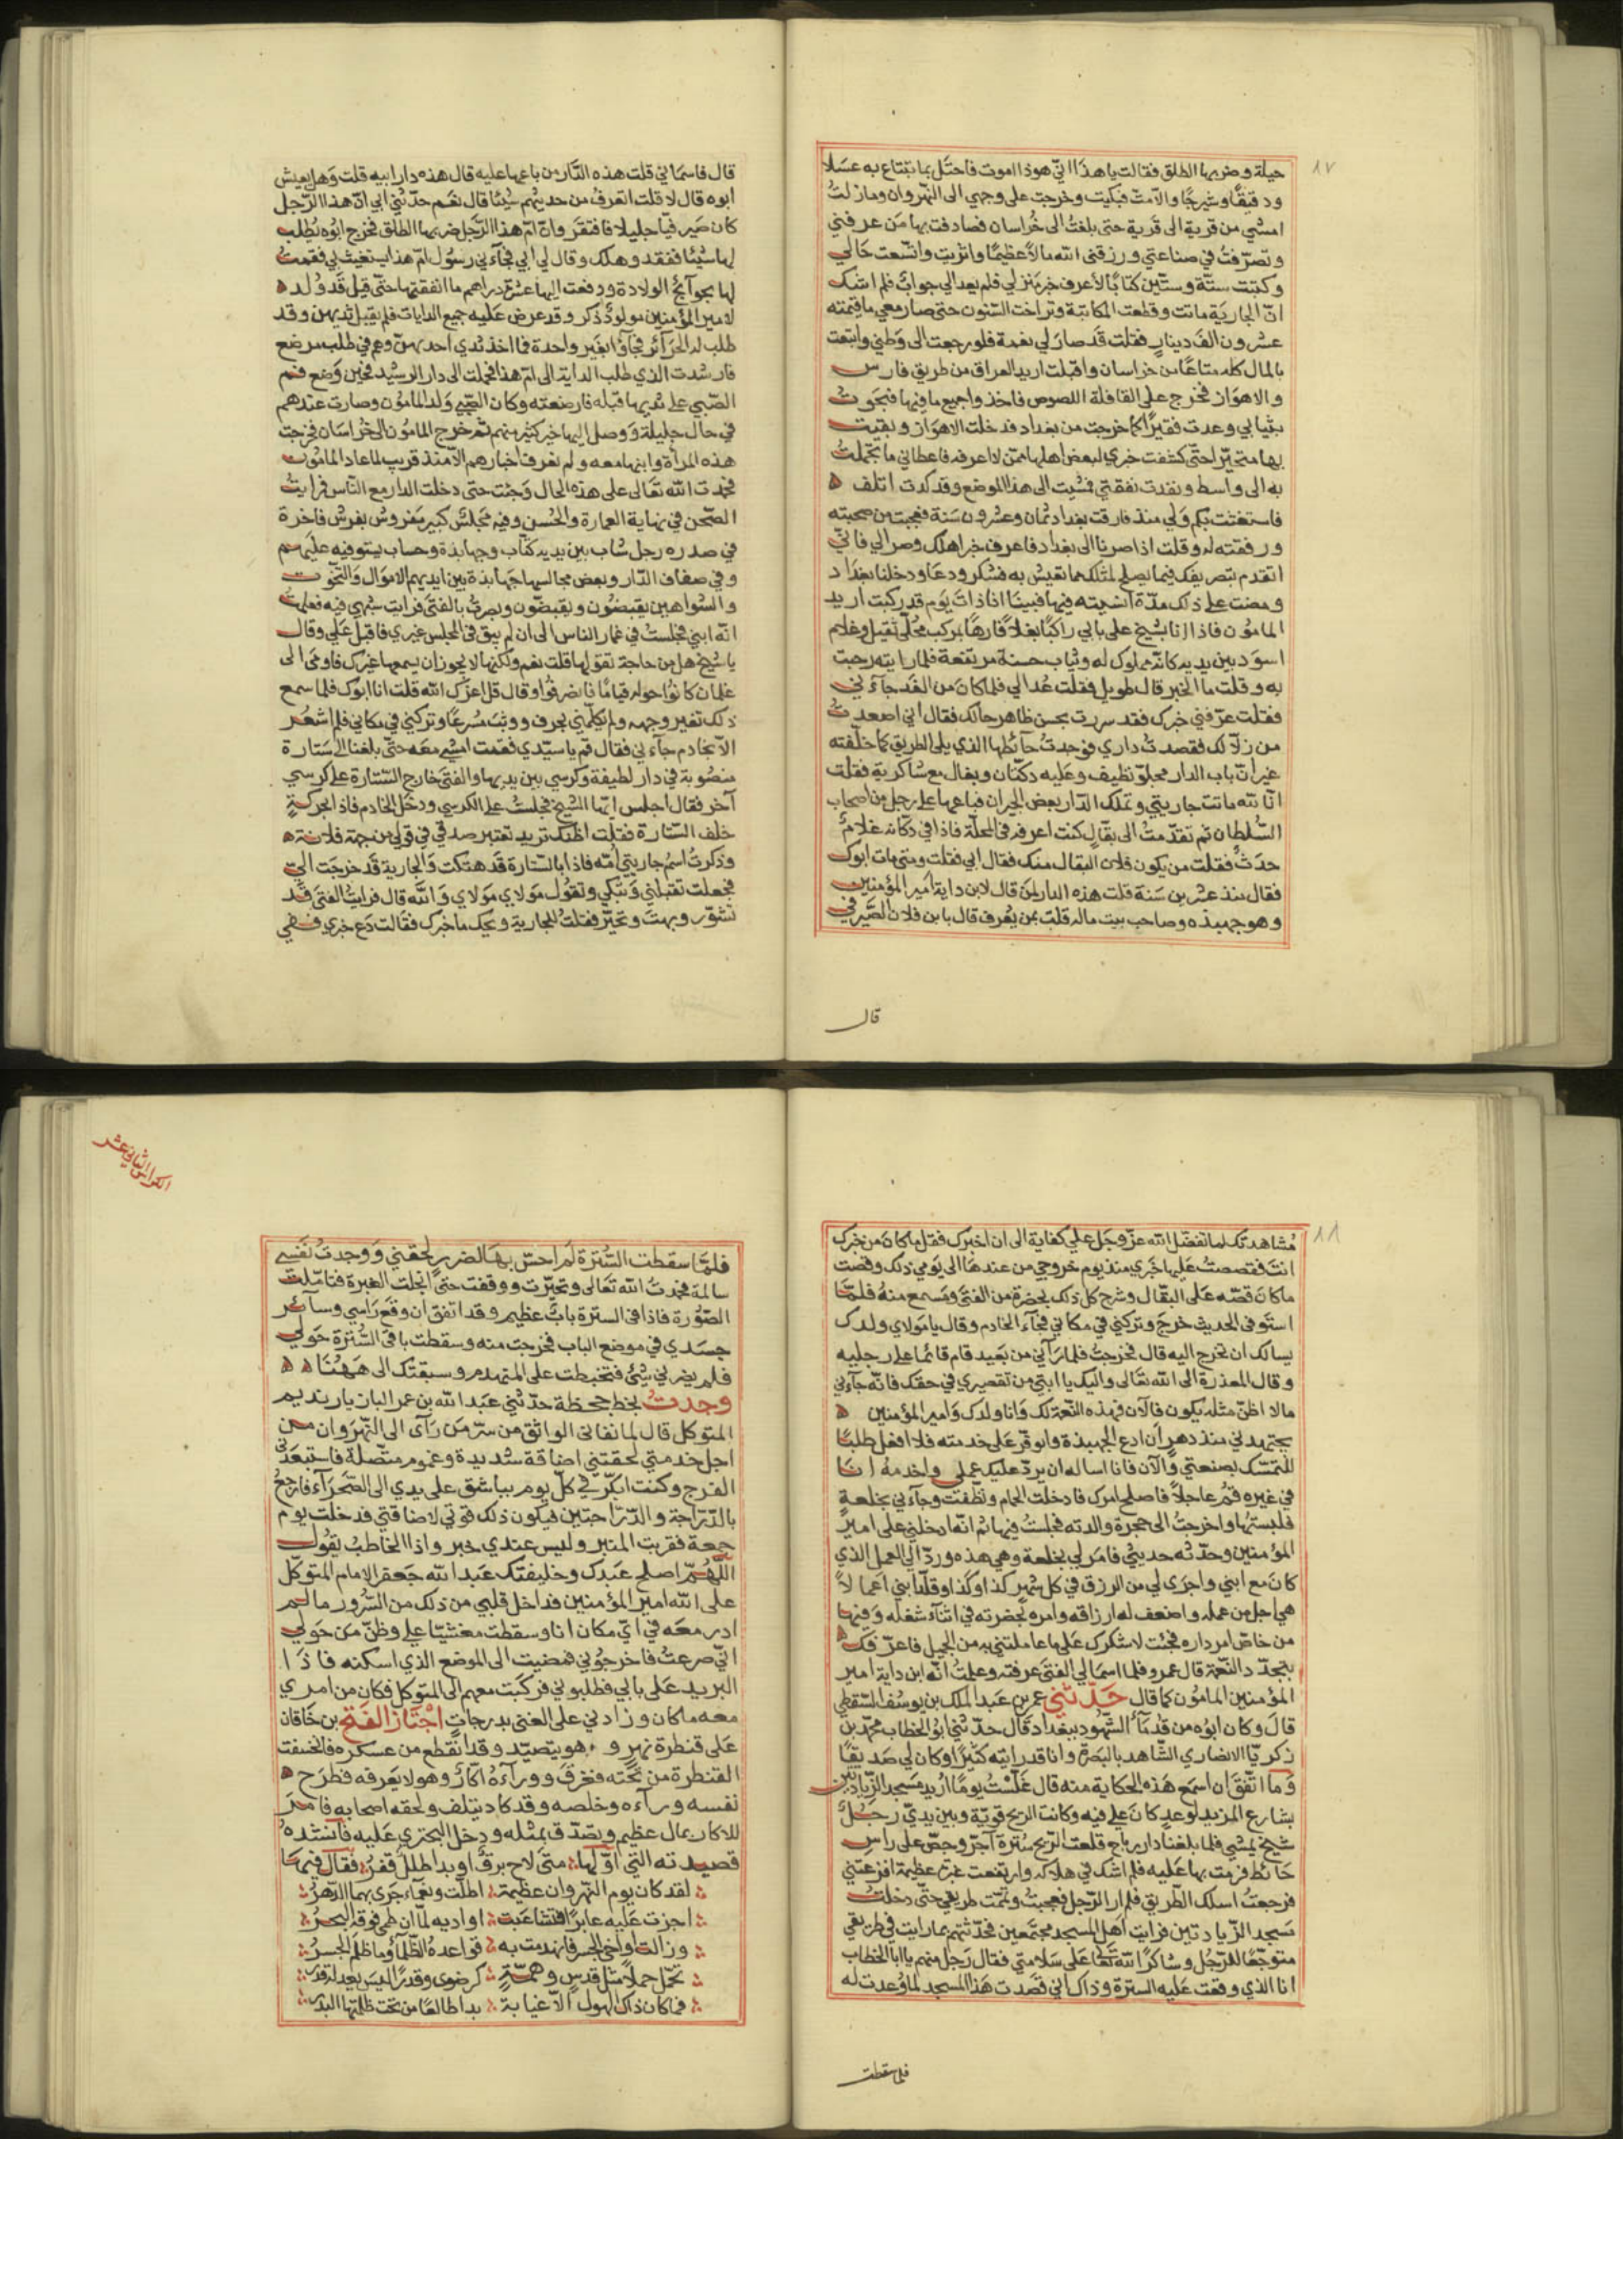 ٨٧
حيلة وضربها الطلق فقالت يا هذا اني هوذا اموت فاحتل بما تبتاع به عسلا
ودقيقا وشيرجا والا متّ فبكيت وخرجت على وجهي الى النهروان وما زلت
امشي من قرية الى قرية حتى بلغت الى خراسان فصادفت بها من عرفني
وتصرفت في صناعتي ورزقني الله مالا عظيما واثريت واتسعت حالي
وكتبت ستة وستين كتابا لاعرف خبر منزلي فلم يعد الي جواب فلم اشك
ان الجارية ماتت وقطعت المكاتبة وتراخت السنون حتى صار معي ما قيمته
عشرون الف دينار فقلت قد صار لي نعمة فلو رجعت الى وطني وابتعت
بالمال كله متاعا من خراسان واقبلت اريد العراق من طريق فارس
والاهواز فخرج على القافلة اللصوص فاخذوا جميع ما فيها فنجوت
بثيابي وعدت فقيرا كما خرجت من بغداد فدخلت الاهواز وبقيت
بها متحيرا حتى كشفت خبري لبعض اهلها ممن لا اعرفه فاعطاني ما تحملت
به الى واسط ونفدت نفقتي فمشيت الى هذا الموضع وقد كدت اتلف ۵
فاستغثت بكم ولي منذ فارقت بغداد ثمان وعشرون سنة فعجبت من محنته
ورفقته له وقلت اذا صرنا الى بغداد فاعرف خبر اهلك وصر الي فاني
اتقدم بتصريفك فيما يصلح لمثلك مما تعيش به فشكر ودعا ودخلنا بغداد
ومضت على ذلك مدة انسيته فيها فبينا انا ذات يوم قد ركبت اريد
المامون فاذا انا بشيخ على بابي راكبا بغلا فارها بمركب محلى ثقيل وغلام
اسود بين يديه كانه مملوك له وثياب حسنة مرتفعة فلما رايته رحبت
به وقلت ما الخبر قال طويل فقلت عد الي فلما كان من الغد جاءني
فقلت عرفني خبرك فقد سررت بحسن ظاهر حالك فقال اني اصعدت
من زلالك فقصدت داري فوجدت حائطها الذي يلي الطريق كما خلفته
غير ان باب الدار مجلو نظيف وعليه دكتان وبغال مع شاكرية فقلت
انا لله ماتت جاريتي وتملك الدار بعض الجيران فباعها على رجل من اصحاب
السلطان ثم تقدمت الى بقال كنت اعرفه في المحلة فاذا في دكانه غلام
حدث فقلت من يكون فلان البقال منك فقال ابي فقلت ومتى مات ابوك
فقال منذ عشرين سنة قلت هذه الدار لمن قال لابن داية امير المؤمنين
وهو جهبذه وصاحب بيت ماله قلت بمن يعرف قال بابن فلان الصيرفي
قال
قال فاسماني قلت هذه الدار من باعها عليه قال هذه دار ابيه قلت وهل يعيش
ابوه قال لا قلت اتعرف من حديثهم شيئا قال نعم حدثني ابي ان هذا الرجل
كان صيرفيا جليلا فافتقر وان ام هذا الرجل ضربها الطلق فخرج ابوه يطلب
لها شيئا ففقد وهلك وقال لي ابي فجآءني رسول ام هذا يستغيث بي فقمت
لها بحوآئج الولادة ودفعت اليها عشرة دراهم ما انفقتها حتى قيل قد ولد ۵
لامير المؤمنين مولود ذكر وقد عرض عليه جميع الدايات فلم يقبل ثديهن وقد
طلب له الحرآئر فجآؤا بغير واحدة فما اخذ ثدي احد منهن وهم في طلب مرضع
فارشدت الذي طلب الداية الى ام هذا فحملت الى دار الرشيد فحين وضع فم
الصبي على ثديها قبله فارضعته وكان الصبي ولد المامون وصارت عندهم
في حال جليلة ووصل اليها خير كثير منهم ثم خرج المامون الى خراسان فخرجت
هذه المرأة وابنها معه ولم نعرف اخبارهم الا منذ قريب لما عاد المامون
فحمدت الله تعالى على هذه الحال وجئت حتى دخلت الدار مع الناس فرايت
الصحن في نهاية العمارة والحسن وفيه مجلس كبير مفروش بفرش فاخرة
في صدره رجل شاب بين يديه كتاب وجهابذة وحساب يستوفيه عليهم
وفي صفاف الدار وبعض مجالسها جهابذة بين ايديهم الاموال والتخوت
والشواهين يقبضون ويقبضون وبصرت بالفتى فرايت شبهي فيه فعلمت
انه ابني فجلست في غمار الناس الى ان لم يبق في المجلس غيري فاقبل علي وقال
يا شيخ هل من حاجة تقولها قلت نعم ولكنها لا يجوز ان يسمعها غيرك فاومى الى
غلمان كانوا حوله قياما فانصرفوا وقال قل اعزك الله قلت انا ابوك فلما سمع
ذلك تغير وجهه ولم يكلمني بحرف ووثب مسرعا وتركني في مكاني فلم اشعر
الا بخادم جآءني فقال قم يا سيدي فقمت امشي معه حتى بلغنا الى ستارة
منصوبة في دار لطيفة وكرسي بين يديها والفتى خارج الستارة على كرسي
آخر فقال اجلس ايها الشيخ فجلست على الكرسي ودخل الخادم فاذا بحركة
خلف الستارة فقلت اظنك تريد تعتبر صدقي في قولي من جهة فلانة ۵
وذكرت اسم جاريتي امه فاذا بالستارة قد هتكت والجارية قد خرجت الي
فجعلت تقبلني وتبكي وتقول مولاي مولاي والله قال فرايت الفتى قد
تشور وبهت وتحير فقلت للجارية ويحك ما خبرك فقالت دع خبري ففي
٨٨
مشاهدتك لما تفضل الله عز وجل علي كفاية الى ان اخبرك فقل ما كان من خبرك
انت فقصصت عليها خبري منذ يوم خروجي من عندها الى يومي ذلك وقصت
ما كان قصه علي البقال وشرح كل ذلك بحضرة من الفتى وتسمع منه فلما
استوفى الحديث خرج وتركني في مكاني فجآء الخادم وقال يا مولاي ولدك
يسالك ان تخرج اليه قال فخرجت فلما رآني من بعيد قام قائما على رجليه
وقال المعذرة الى الله تعالى واليك يا ابتي من تقصيري في حقك فانه جآءني
ما لا اظن مثله يكون فالآن فهذه النعمة لك وانا ولدك وامير المؤمنين ۵
يجتهد بي منذ دهر ان ادع الجهبذة واتوفر على خدمته فلا افعل طلبا
للتمسك بصنعتي والآن فانا اساله ان يرد عليك عملي واخدمه انا
في غيره فقم عاجلا فاصلح امرك فادخلت الحمام ونظفت وجآءني بخلعة
فلبستها واخرجت الى حجرة والدته فجلست فيها ثم انه ادخلني على امير
المؤمنين وحدثه حديثي فامر لي بخلعة وهي هذه ورد الي العمل الذي
كان مع ابني واجرى لي من الرزق في كل شهر كذا وكذا وقلد ابني اعمالا
هي اجل من عمله واضعف له ارزاقه وامره بحضرته في اثنآء شغله وفيها
من خاص امر داره فجئت لاشكرك على ما عاملتني به من الجميل فاعرفك ۵
بتجدد النعمة قال عمرو فلما اسما لي الفتى عرفته وعلمت انه ابن داية امير
المؤمنين المامون كما قال حدثني عمر بن عبد الملك بن يوسف السقطي
قال وكان ابوه من قدمآء الشهود ببغداد قال حدثني ابو الخطاب محمد بن
زكريا الانصاري الشاهد بالبصرة وانا قد رايته كثيرا وكان لي صديقا
وما اتفق ان اسمع هذه الحكاية منه قال غلست يوما اريد مسجد الزياديين
بشارع المربد لوعد كان علي فيه وكانت الريح قوية وبين يدي رجل
شيخ يمشي فلما بلغنا دار رباح قلعت الريح سترة آجر وجص على راس
حائط فرمت بها عليه فلم اشك في هلاكه وارتفعت غبرة عظيمة افزعتني
فرجعت اسلك الطريق فلم ار الرجل فعجبت وتممت طريقي حتى دخلت
مسجد الزيادتين فرايت اهل المسجد مجتمعين فحدثتهم بما رايت في طريقي
متوجعا للرجل وشاكرا لله تعالى على سلامتي فقال رجل منهم يا ابا الخطاب
انا الذي وقعت عليه السترة وذاك اني قصدت هذا المسجد لما وعدت له
فلما سقطت
الكراس الثاني عشر
فلما سقطت السترة لم احس بها لضرر لحقني ووجدت نفسي
سالمة فحمدت الله تعالى وتحيرت ووقفت حتى انجلت الغبرة فتاملت
الصورة فاذا في السترة باب عظيم وقد اتفق ان وقع راسي وسآئر
جسدي في موضع الباب فخرجت منه وسقطت باقي السترة حولي
فلم يضرني شيئ فتخبطت على المتهدم وسبقتك الى هههنا ۵ ۵
وجدت بخط جحظة حدثني عبد الله بن عمر البازيار نديم
المتوكل قال لما نفاني الواثق من سر من رآى الى النهروان من
اجل خدمتي لحقتني اضاقة شديدة وغموم متصلة فاستبعدت
الفرج وكنت ابكر في كل يوم بباشق على يدي الى الصحرآء فارجع
بالدراجة والدراجتين فيكون ذلك قوتي لاضاقتي فدخلت يوم
جمعة فقربت المنبر وليس عندي خبر واذا الخاطب يقول
اللهم اصلح عبدك وخليفتك عبد الله جعفر الامام المتوكل
على الله امير المؤمنين فداخل قلبي من ذلك من السرور ما لم
ادر معه في اي مكان انا وسقطت مغشيا علي وظن من حولي
اني صرعت فاخرجوني فمضيت الى الموضع الذي اسكنه فاذا
البريد على بابي فطلبوني فركبت معهم الى المتوكل فكان من امري
معه ما كان وزادني على الغنى بدرجات اجتاز الفتح بن خاقان
على قنطرة نهر وهو يتصيد وقد انقطع من عسكره فانخسفت
القنطرة من تحته فغرق وورآءه اكار وهو لا يعرفه فطرح ۵
نفسه ورآءه وخلصه وقد كاد يتلف ولحقه اصحابه فامر
للاكار بمال عظيم وتصدق بمثله ودخل البحتري عليه فانشده
قصيدته التي اولها متى لاح برق او بدا طلل قفر فقال فيها
لقد كان يوم النهروان عظيمة اطلت ونعمآء جرى بهما الدهر
اجزت عليه عابرا فتشاعبت اواديه لما ان طمى فوقه البحر
وزالت اواخي الجسر فانهدمت به قواعده الظلمآء وما ظلم الجسر
تحمل حملا مثل قدس وهمة كرضوى وقدرا ليس يعدله قدر
فما كان ذاك الهول الا غيابة بدا طالعا من تحت ظلمتها البدر